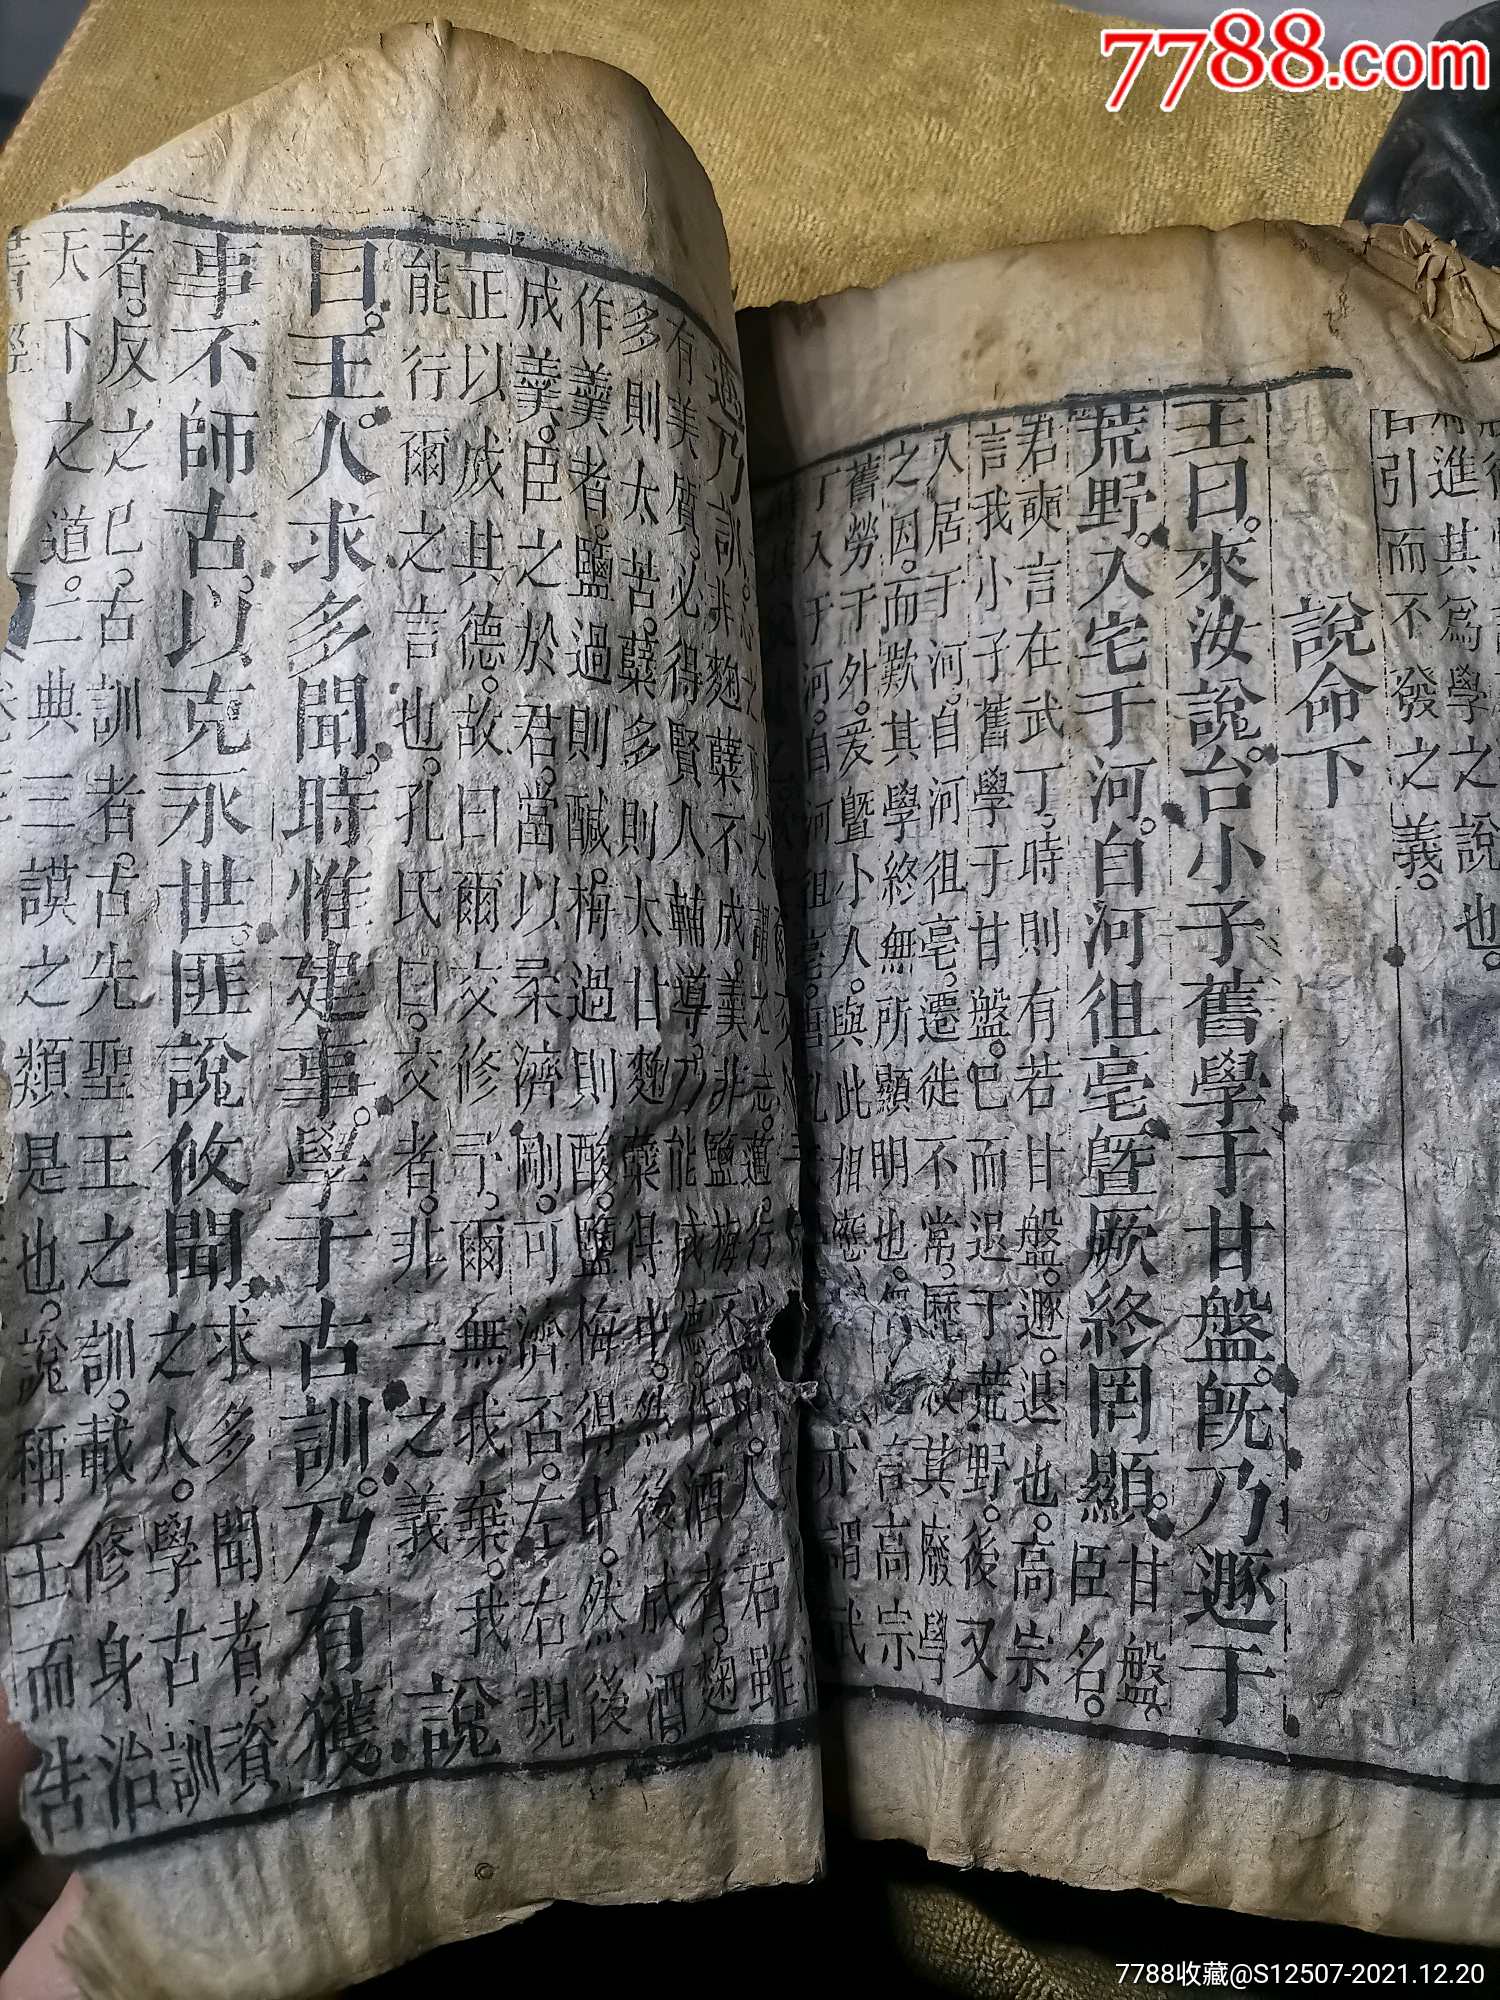 7788.com
將進其爲學之說也。
引而不發之義。
說命下
王曰。來汝說。台小子舊學于甘盤。旣乃遯于
荒野。入宅于河。自河徂亳。曁厥終罔顯。甘盤
臣名。
君奭言在武丁。時則有若甘盤。遯。退也。高宗
言我小子舊學于甘盤。已而退于荒野。後又
入居于河。自河徂亳。遷徙不常。歷
其廢學
之因。而歎其學終無所顯明也。
高宗
舊勞于外。爰曁小人。與此相應。
亦謂武
丁入于河。自河徂亳。
邁乃訓。
君雖
有美質。必得賢人輔導。乃能成德。作酒者。麴
多則太苦。糵多則太甘。麴糵得中。然後成酒。
作羹者。鹽過則鹹。梅過則酸。鹽梅得中。然後
成羹。臣之於君。當以柔濟剛。可濟否。左右規
正以成其德。故曰爾交修予。爾無我棄。我
能行爾之言也。孔氏曰。交者。非一之義
說
曰。王。人求多聞。時惟建事。學于古訓。乃有獲。
事不師古。以克永世。匪說攸聞。求多聞者。資
之人。學古訓
者。反之己。古訓者。古先聖王之訓。載修身治
天下之道。二典三謨之類是也。說稱王而告
7788收藏@S12507-2021.12.20